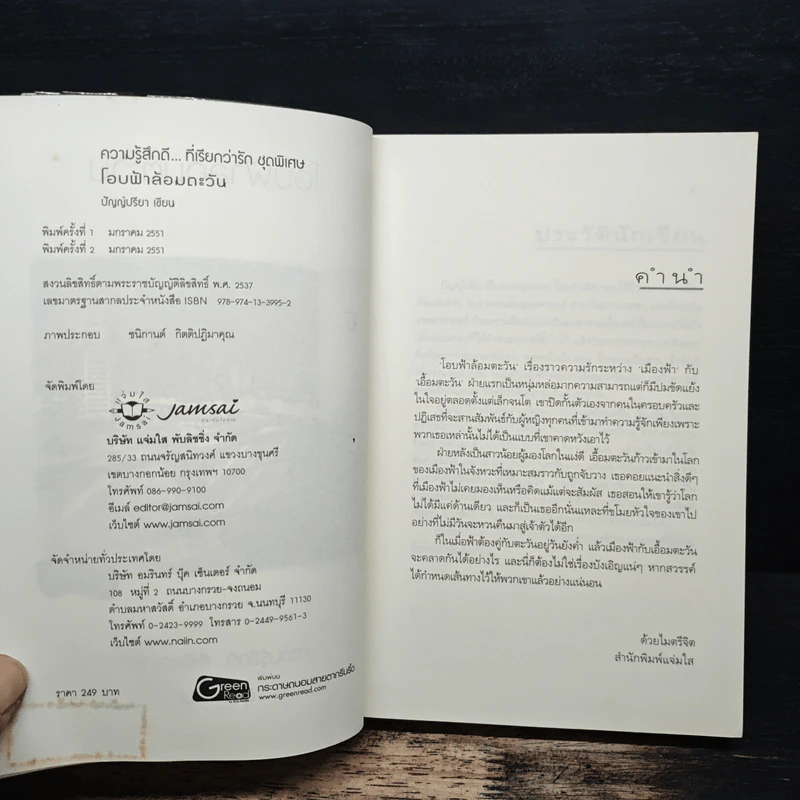 ความรู้สึกดี... ที่เรียกว่ารัก ชุดพิเศษ
โอบฟ้าล้อมตะวัน
ปัญญ์ปรียา เขียน
พิมพ์ครั้งที่ 1 มกราคม 2551
พิมพ์ครั้งที่ 2 มกราคม 2551
สงวนลิขสิทธิ์ตามพระราชบัญญัติลิขสิทธิ์ พ.ศ. 2537
เลขมาตรฐานสากลประจำหนังสือ ISBN 978-974-13-3995-2
ภาพประกอบ ชนิกานต์ กิตติปฏิมาคุณ
จัดพิมพ์โดย
แจ่มใส
Jamsai
Jamsai
บริษัท แจ่มใส พับลิชชิ่ง จำกัด
285/33 ถนนจรัญสนิทวงศ์ แขวงบางขุนศรี
เขตบางกอกน้อย กรุงเทพฯ 10700
โทรศัพท์ 086-990-9100
อีเมล์ editor@jamsai.com
เว็บไซต์ www.jamsai.com
จัดจำหน่ายทั่วประเทศโดย
บริษัท อมรินทร์ บุ๊ค เซ็นเตอร์ จำกัด
108 หมู่ที่ 2 ถนนบางกรวย-จงถนอม
ตำบลมหาสวัสดิ์ อำเภอบางกรวย จ.นนทบุรี 11130
โทรศัพท์ 0-2423-9999 โทรสาร 0-2449-9561-3
เว็บไซต์ www.naiin.com
ราคา 249 บาท
Green Read
พิมพ์บน
กระดาษถนอมสายตากรีนรี้ด
www.greenread.com
คำนำ
'โอบฟ้าล้อมตะวัน' เรื่องราวความรักระหว่าง 'เมืองฟ้า' กับ
'เอื้อมตะวัน' ฝ่ายแรกเป็นหนุ่มหล่อมากความสามารถแต่ก็มีปมขัดแย้ง
ในใจอยู่ตลอดตั้งแต่เล็กจนโต เขาปิดกั้นตัวเองจากคนในครอบครัวและ
ปฏิเสธที่จะสานสัมพันธ์กับผู้หญิงทุกคนที่เข้ามาทำความรู้จักเพียงเพราะ
พวกเธอเหล่านั้นไม่ได้เป็นแบบที่เขาคาดหวังเอาไว้
ฝ่ายหลังเป็นสาวน้อยผู้มองโลกในแง่ดี เอื้อมตะวันก้าวเข้ามาในโลก
ของเมืองฟ้าในจังหวะที่เหมาะสมราวกับถูกจับวาง เธอคอยแนะนำสิ่งดีๆ
ที่เมืองฟ้าไม่เคยมองเห็นหรือคิดแม้แต่จะสัมผัส เธอสอนให้เขารู้ว่าโลก
ไม่ได้มีแค่ด้านเดียว และก็เป็นเธออีกนั่นแหละที่ขโมยหัวใจของเขาไป
อย่างที่ไม่มีวันจะหวนคืนมาสู่เจ้าตัวได้อีก
ก็ในเมื่อฟ้าต้องคู่กับตะวันอยู่วันยังค่ำ แล้วเมืองฟ้ากับเอื้อมตะวัน
จะคลาดกันได้อย่างไร และนี่ก็ต้องไม่ใช่เรื่องบังเอิญแน่ๆ หากสวรรค์
ได้กำหนดเส้นทางไว้ให้พวกเขาแล้วอย่างแน่นอน
ด้วยไมตรีจิต
สำนักพิมพ์แจ่มใส